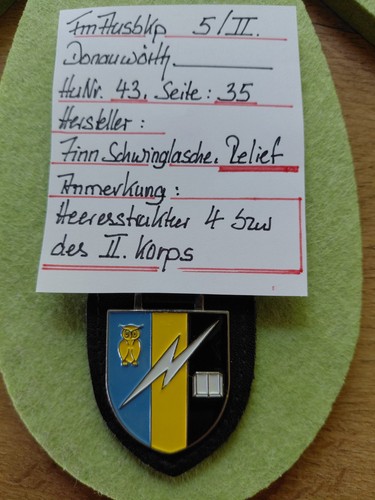 FmAusbKp 5/II.
Donauwörth
HuNr. 43. Seite: 35
Hersteller:
Zinn Schwinglasche. Relief
Anmerkung:
Heeresstruktur 4 bzw
des II. Korps